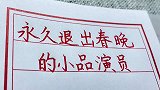 永久退出春晚
的小品演员